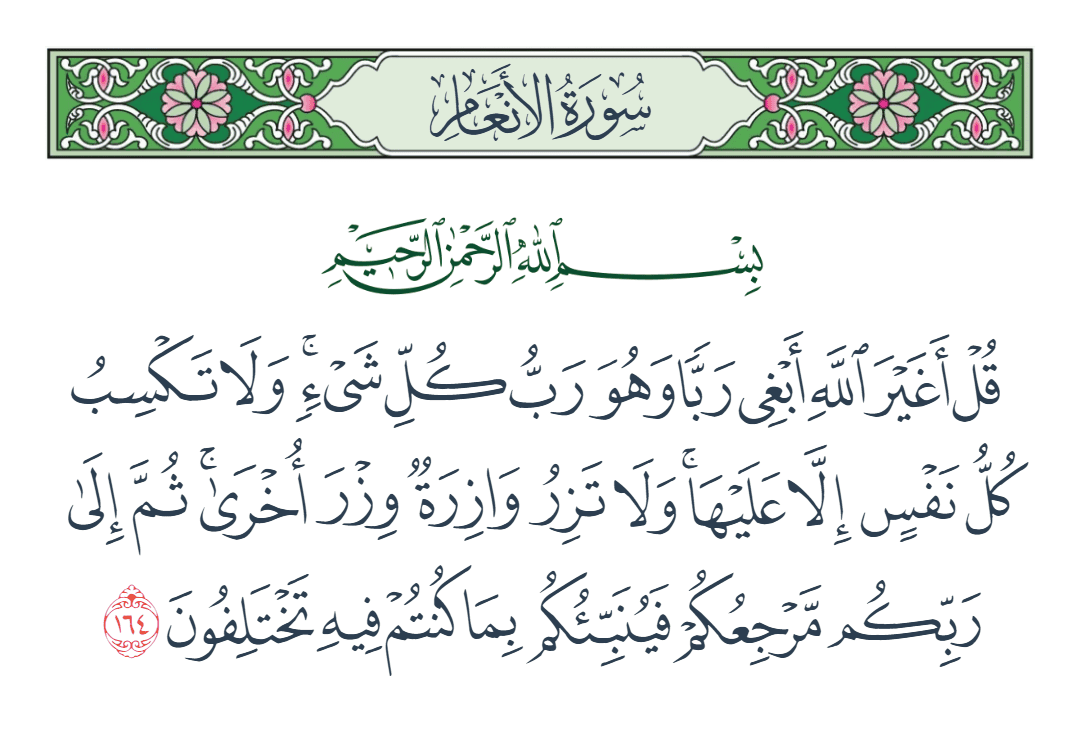 سُورَةُ الأَنْعَامِ
بِسْمِ ٱللَّهِ ٱلرَّحْمَٰنِ ٱلرَّحِيمِ
قُلْ أَغَيْرَ ٱللَّهِ أَبْغِى رَبًّا وَهُوَ رَبُّ كُلِّ شَىْءٍ ۚ وَلَا تَكْسِبُ
كُلُّ نَفْسٍ إِلَّا عَلَيْهَا ۚ وَلَا تَزِرُ وَازِرَةٌ وِزْرَ أُخْرَىٰ ۚ ثُمَّ إِلَىٰ
رَبِّكُم مَّرْجِعُكُمْ فَيُنَبِّئُكُم بِمَا كُنتُمْ فِيهِ تَخْتَلِفُونَ ١٦٤